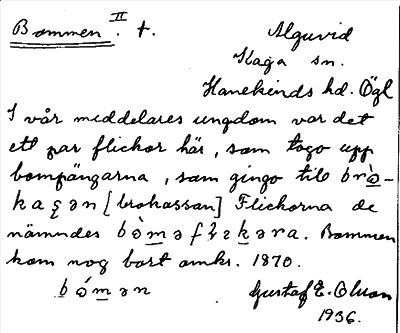 Bommen II. t. Alguvid
Kaga sn.
Hanekinds hd. Ögl
I vår meddelares ungdom var det
ett par flickor här, som togo upp
bompängarna, som gingo till brò̱-
kaʂən [brokassan] Flickorna de
nämndes bò̱məflɩkəra. Bommen
kom nog bort omkr. 1870.
bó̱mən Gustaf E. Olsson
1936.